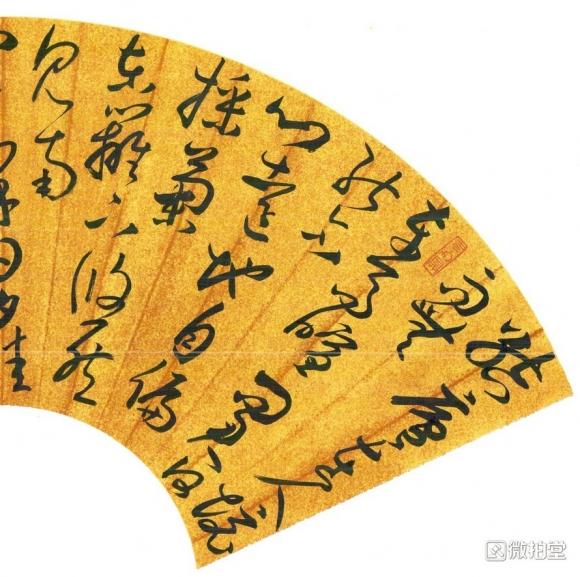 結廬在人
境而無
車馬喧問君何能
心遠地自偏
採菊
東籬下悠然
見南
日夕佳
微拍堂